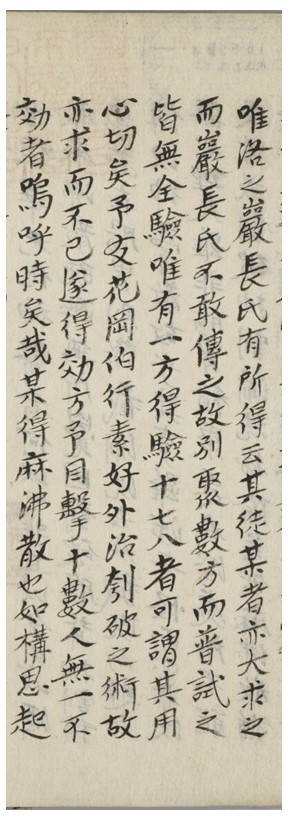 唯洛之巖長氏有所得云其徒某者亦大求之
而巖長氏不敢傳之故別聚數方而普試之
皆無全驗唯有一方得驗十七八者可謂其用
心切矣予友花岡伯行素好外治刳破之術故
亦求而不已遂得効方予目擊十數人無一不
効者嗚呼時矣哉某得麻沸散也如構思起